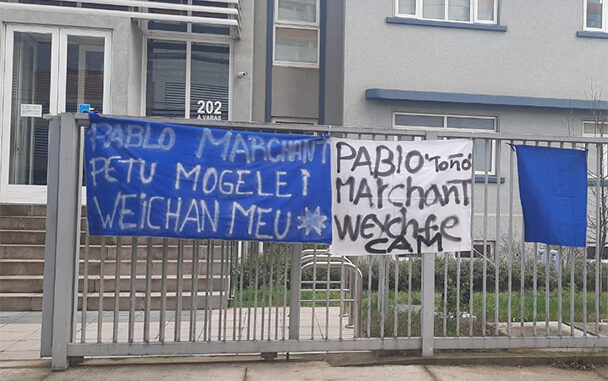 202
A.VARAS
PABLO MARCHANT
PETU MOGELEI
WEICHAN MEU
PABLO "Toño
MARCHANT
WEYCHAFE
CAM